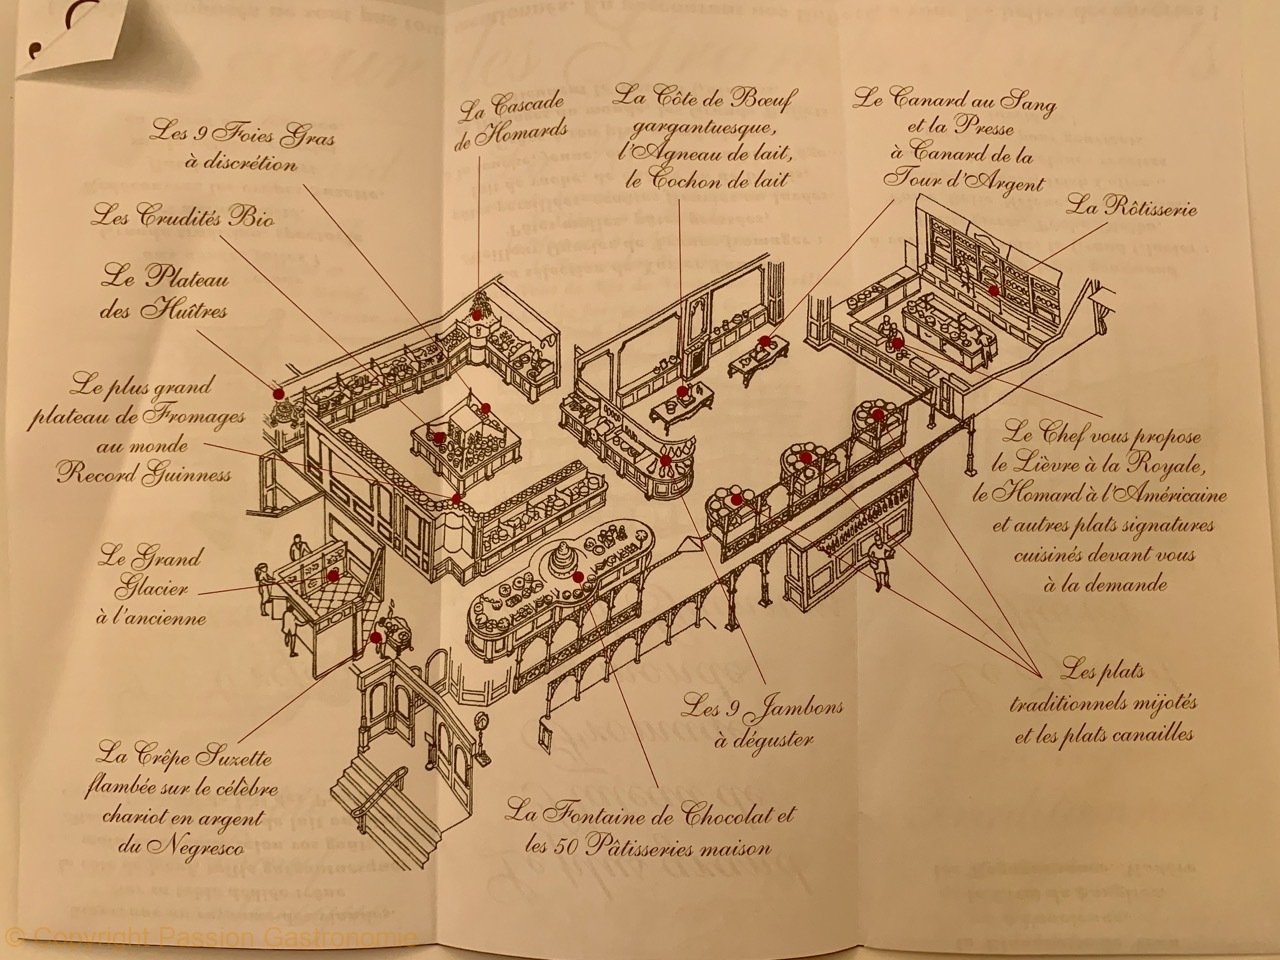 La Cascade
de Homards
La Côte de Bœuf
gargantuesque,
l'Agneau de lait,
le Cochon de lait
Le Canard au Sang
et la Presse
à Canard de la
Tour d'Argent
Les 9 Foies Gras
à discrétion
La Rôtisserie
Les Crudités Bio
Le Plateau
des Huîtres
Le plus grand
plateau de Fromages
au monde
Record Guinness
Le Chef vous propose
le Lièvre à la Royale,
le Homard à l'Américaine
et autres plats signatures
cuisinés devant vous
à la demande
Le Grand
Glacier
à l'ancienne
Les plats
traditionnels mijotés
et les plats canailles
Les 9 Jambons
à déguster
La Crêpe Suzette
flambée sur le célèbre
chariot en argent
du Negresco
La Fontaine de Chocolat et
les 50 Pâtisseries maison
© Copyright Passion Gastronomie